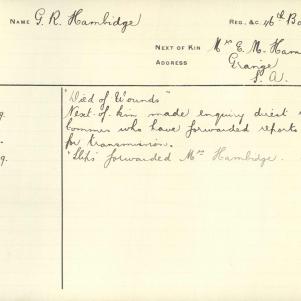 NAME G. R. Hambidge REG. &c. 16th Ba
NEXT OF KIN Mrs E. M. Ham
ADDRESS Grange
S. A.
"Died of Wounds"
9. Next-of-kin made enquiry direct
Commrs who have forwarded reports
for transmission.
9. "Slips" forwarded Mrs Hambidge.